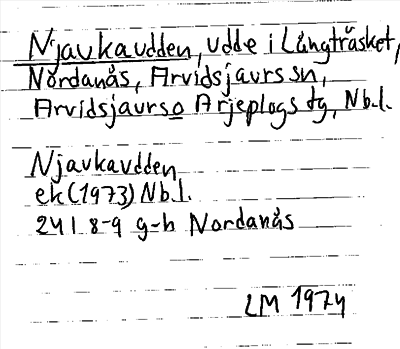 Njavkavdden, udde i Långträsket,
Nordanås, Arvidsjaurs sn,
Arvidsjaurs o Arjeplogs tg, Nb.l.
Njavkavdden
ek (1973) Nb.l.
24 I 8-9 g-h Nordanås
LM 1974